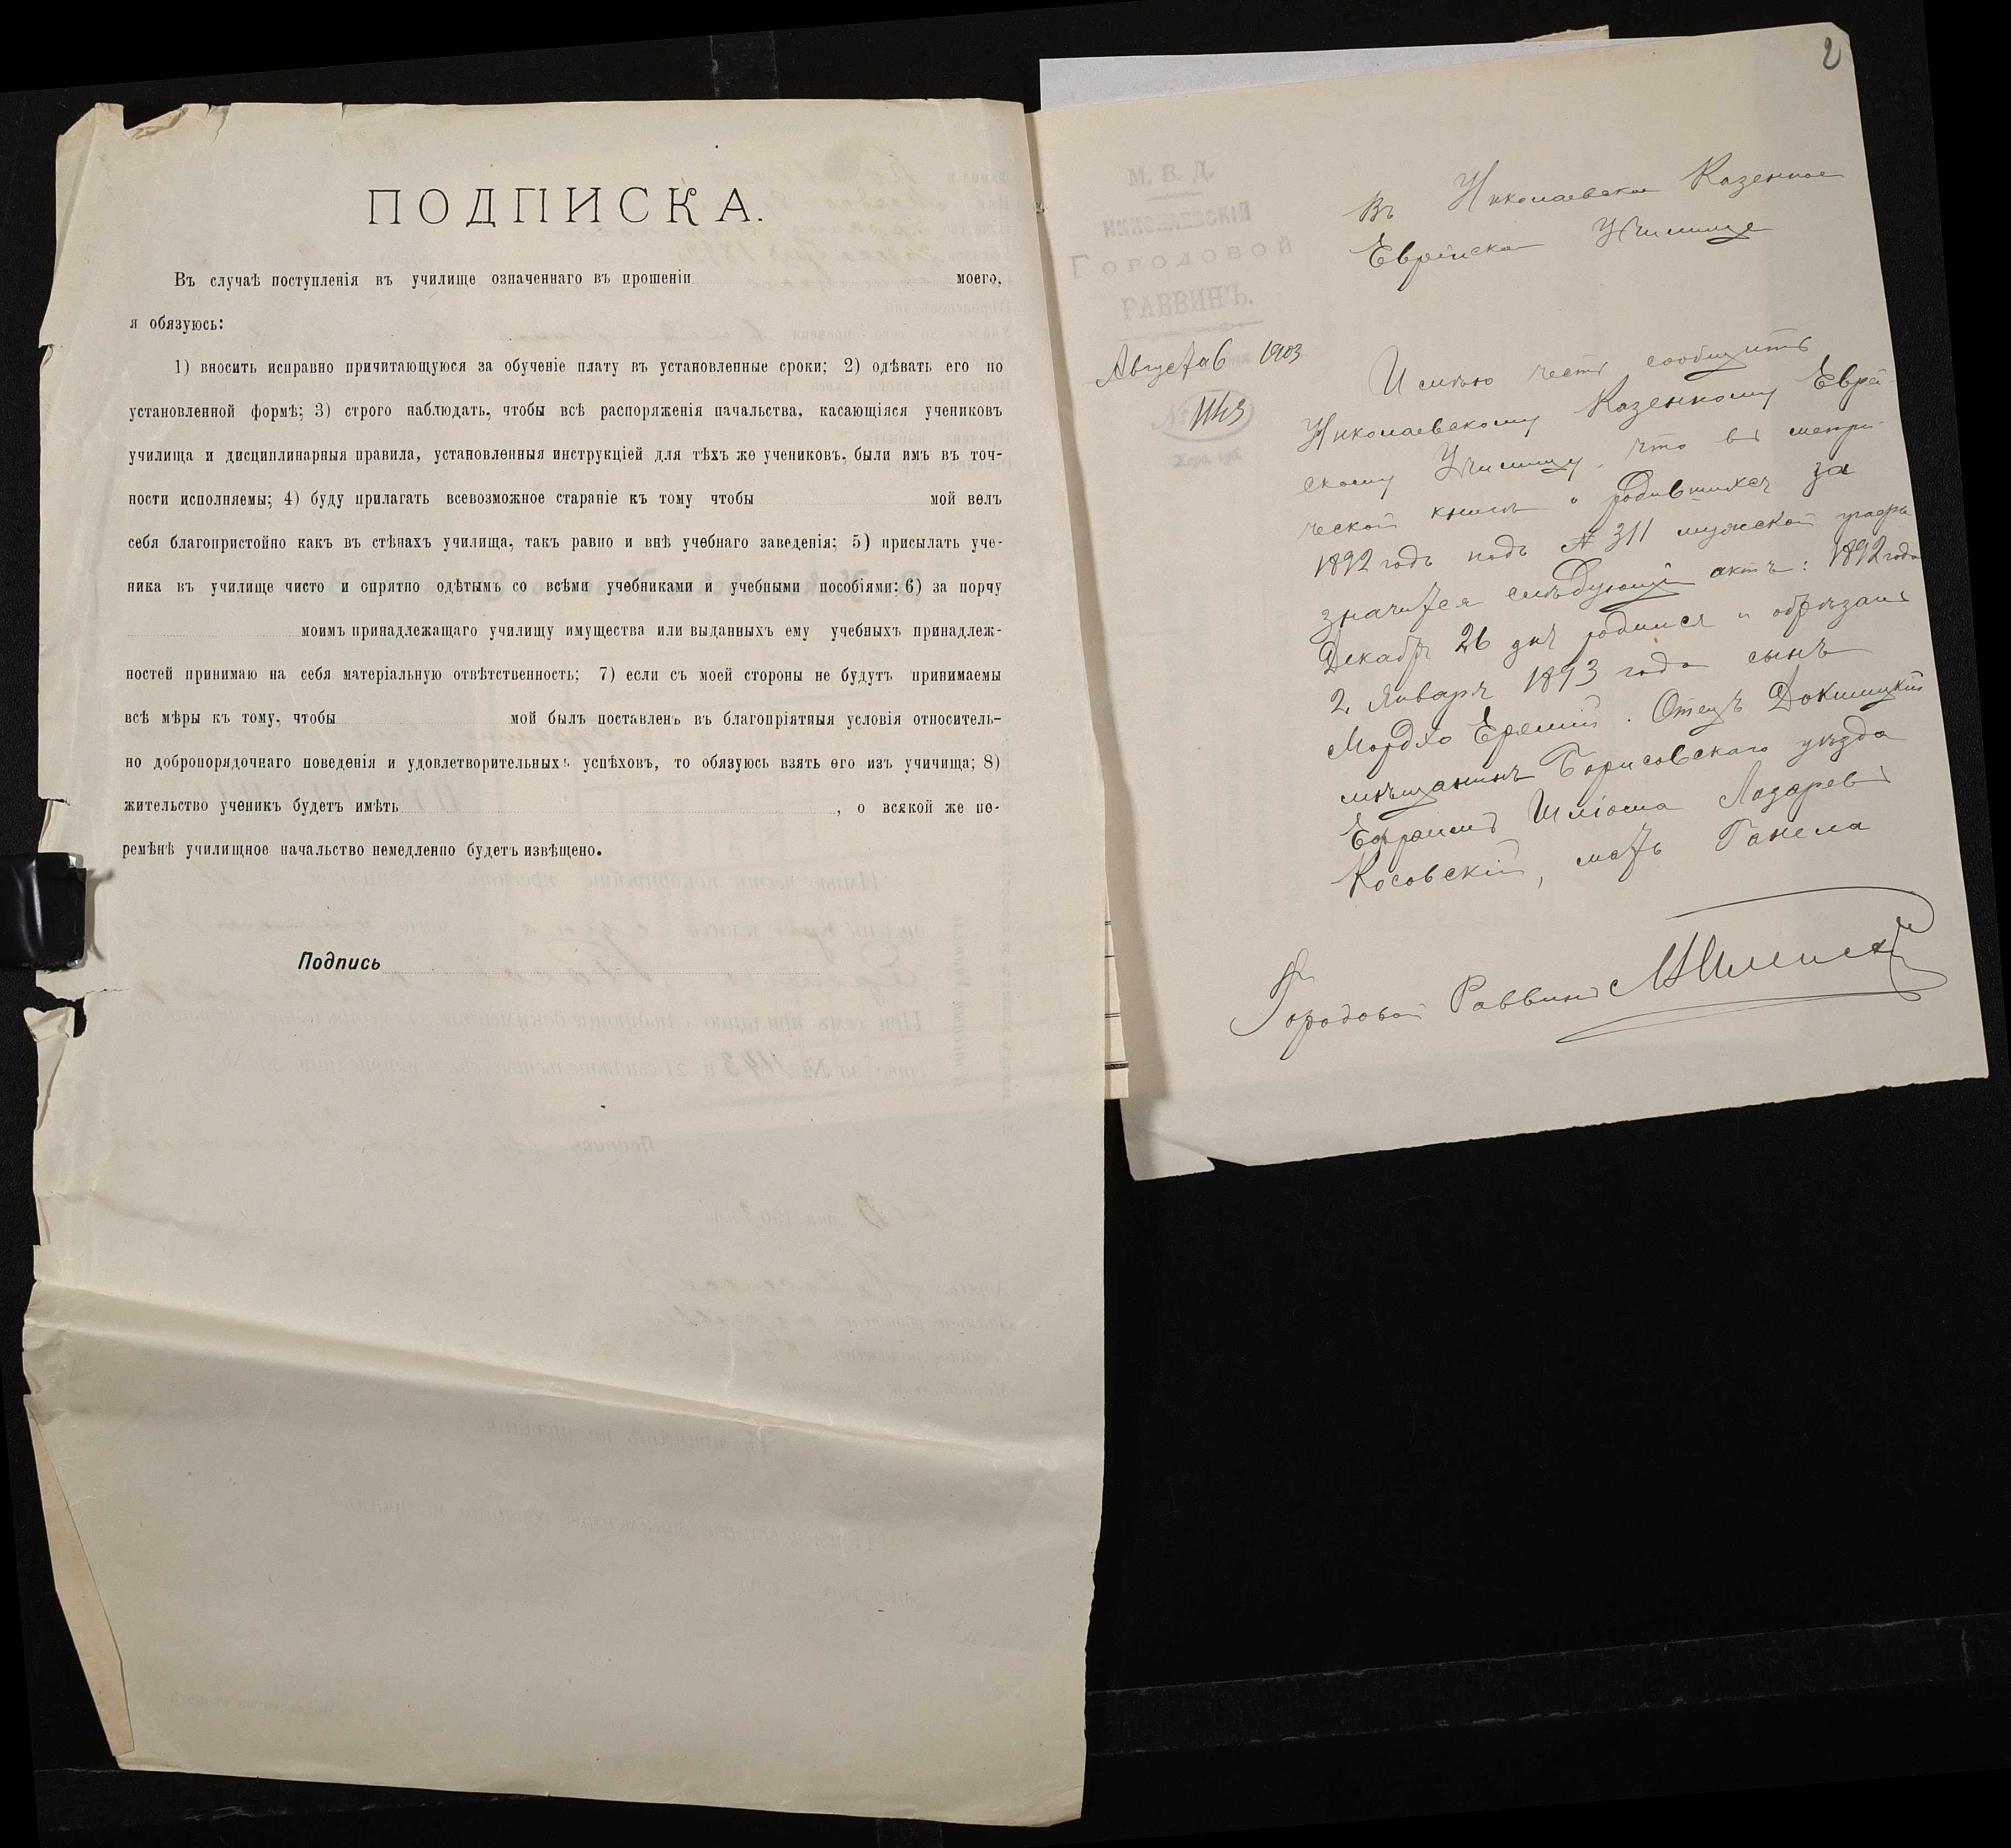 ПОДПИСКА.
Въ случаѣ поступленія въ училище означеннаго въ прошеніи моего,
я обязуюсь:
1) вносить исправно причитающуюся за обученіе плату въ установленные сроки; 2) одѣвать его по
установленной формѣ; 3) строго наблюдать, чтобы всѣ распоряженія начальства, касающіяся учениковъ
училища и дисциплинарныя правила, установленныя инструкціей для тѣхъ же учениковъ, были имъ въ точ-
ности исполняемы; 4) буду прилагать всевозможное стараніе къ тому чтобы мой велъ
себя благопристойно какъ въ стѣнахъ училища, такъ равно и внѣ учебнаго заведенія; 5) присылать уче-
ника въ училище чисто и опрятно одѣтымъ со всѣми учебниками и учебными пособіями: 6) за порчу
моимъ принадлежащаго училищу имущества или выданныхъ ему учебныхъ принадлеж-
ностей принимаю на себя матеріальную отвѣтственность; 7) если съ моей стороны не будутъ принимаемы
всѣ мѣры къ тому, чтобы мой былъ поставленъ въ благопріятныя условія относитель-
но добропорядочнаго поведенія и удовлетворительныхъ успѣховъ, то обязуюсь взять его изъ учичища; 8)
жительство ученикъ будетъ имѣть , о всякой же пе-
ремѣнѣ училищное начальство немедленно будетъ извѣщено.
Подпись
2
М. В. Д.
НИКОЛАЕВСКІЙ
ГОРОДОВОЙ
РАВВИНЪ.
Августа 6 1903
№ 1143
Херс. губ.
Въ Николаевское Казенное
Еврейское Училище
Имѣю честь сообщить
Николаевскому Казенному Еврей-
скому Училищу, что въ метри-
ческой книгѣ о родившихся за
1892 годъ подъ № 311 мужской графы
значится слѣдующій актъ: 1892 года
Декабря 26 дня родился и обрѣзанъ
2 Января 1893 года сынъ
Мордхо Еремій. Отецъ Докшицкій
мѣщанинъ Борисовскаго уѣзда
Ефроимъ Шліома Лазаревъ
Косовскій, мать Ганела
Городовой Раввинъ